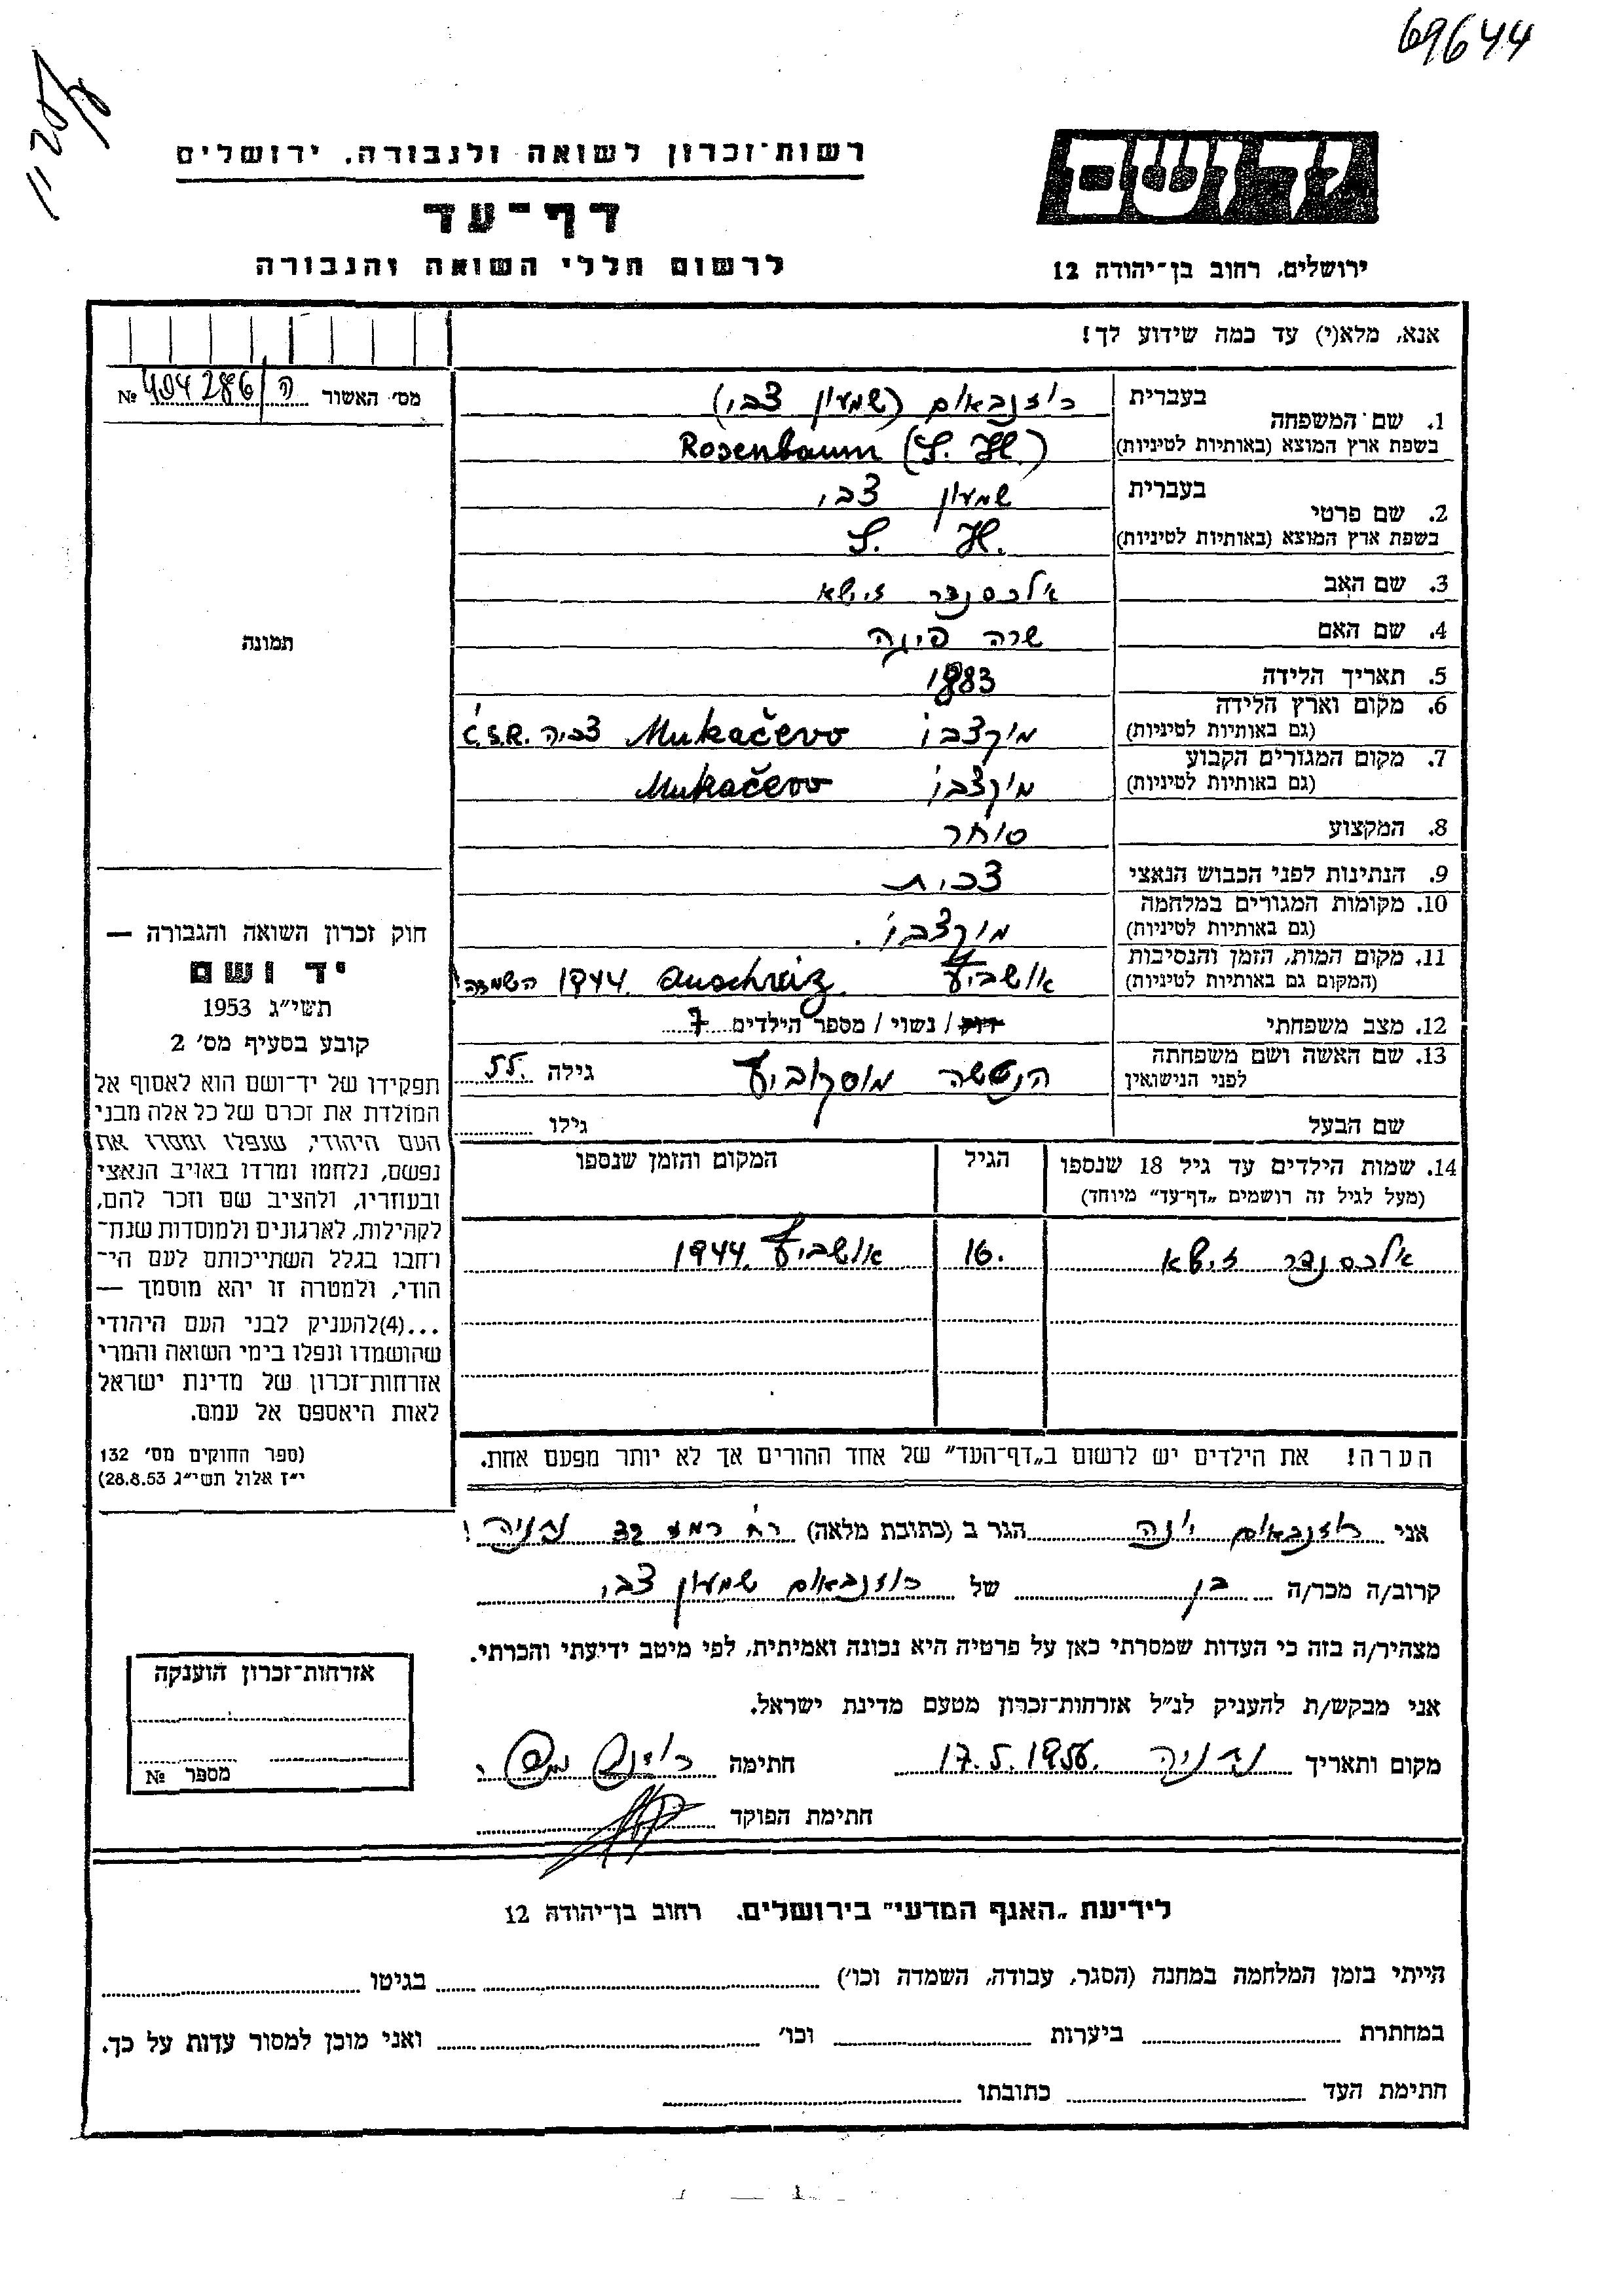 69644
רשות־זכרון לשואה ולגבורה, ירושלים
דף־עד
לרשום חללי השואה והגבורה
יד ושם
ירושלים, רחוב בן־יהודה 12
אנא, מלא(י) עד כמה שידוע לך!
מס׳ האשור ה/404286 №
תמונה
חוק זכרון השואה והגבורה —
יד ושם
תשי״ג 1953
קובע בסעיף מס׳ 2
תפקידו של יד־ושם הוא לאסוף אל
המולדת את זכרם של כל אלה מבני
העם היהודי, שנפלו ומסרו את
נפשם, נלחמו ומרדו באויב הנאצי
ובעוזריו, ולהציב שם וזכר להם,
לקהילות, לארגונים ולמוסדות שנח־
רחבו בגלל השתייכותם לעם הי־
הודי, ולמטרה זו יהא מוסמך —
...(4)להעניק לבני העם היהודי
שהושמדו ונפלו בימי השואה והמרי
אזרחות־זכרון של מדינת ישראל
לאות היאספם אל עמם.
(ספר החוקים מס׳ 132
י״ז אלול תשי״ג 28.8.53)
1. שם המשפחה בעברית רוזנבאום (שמעון צבי)
בשפת ארץ המוצא (באותיות לטיניות) Rosenbaum (S. H.)
2. שם פרטי בעברית שמעון צבי
בשפת ארץ המוצא (באותיות לטיניות) S. H.
3. שם האב אלכסנדר זישא
4. שם האם שרה
5. תאריך הלידה 1883
6. מקום וארץ הלידה (גם באותיות לטיניות) מוקצבו Mukačevo צכיה Č.S.R.
7. מקום המגורים הקבוע (גם באותיות לטיניות) מוקצבו Mukačevo
8. המקצוע סוחר
9. הנתינות לפני הכבוש הנאצי צכית
10. מקומות המגורים במלחמה (גם באותיות לטיניות) מוקצבו.
11. מקום המות, הזמן והנסיבות (המקום גם באותיות לטיניות) אושביץ Auschwiz 1944. השמדה
12. מצב משפחתי רווק / נשוי / מספר הילדים 7
13. שם האשה ושם משפחתה לפני הנישואין מוסקוביץ גילה 55.
שם הבעל גילו
14. שמות הילדים עד גיל 18 שנספו הגיל המקום והזמן שנספו
(מעל לגיל זה רושמים „דף־עד״ מיוחד)
אלכסנדר זישא 16. אושביץ 1944.
הערה! את הילדים יש לרשום ב„דף־העד״ של אחד ההורים אך לא יותר מפעם אחת.
אני רוזנבאום יונה הגר ב (כתובת מלאה) רח׳ 32 נתניה
קרוב/ה מכר/ה בן של רוזנבאום שמעון צבי
מצהיר/ה בזה כי העדות שמסרתי כאן על פרטיה היא נכונה ואמיתית, לפי מיטב ידיעתי והכרתי.
אני מבקש/ת להעניק לנ״ל אזרחות־זכרון מטעם מדינת ישראל.
מקום ותאריך נתניה 17.5.1956. חתימה
חתימת הפוקד
אזרחות־זכרון הוענקה
מספר №
לידיעת „האגף המדעי״ בירושלים, רחוב בן־יהודה 12
הייתי בזמן המלחמה במחנה (הסגר, עבודה, השמדה וכו׳) בגיטו
במחתרת ביערות וכו׳ ואני מוכן למסור עדות על כך.
חתימת העד כתובתו